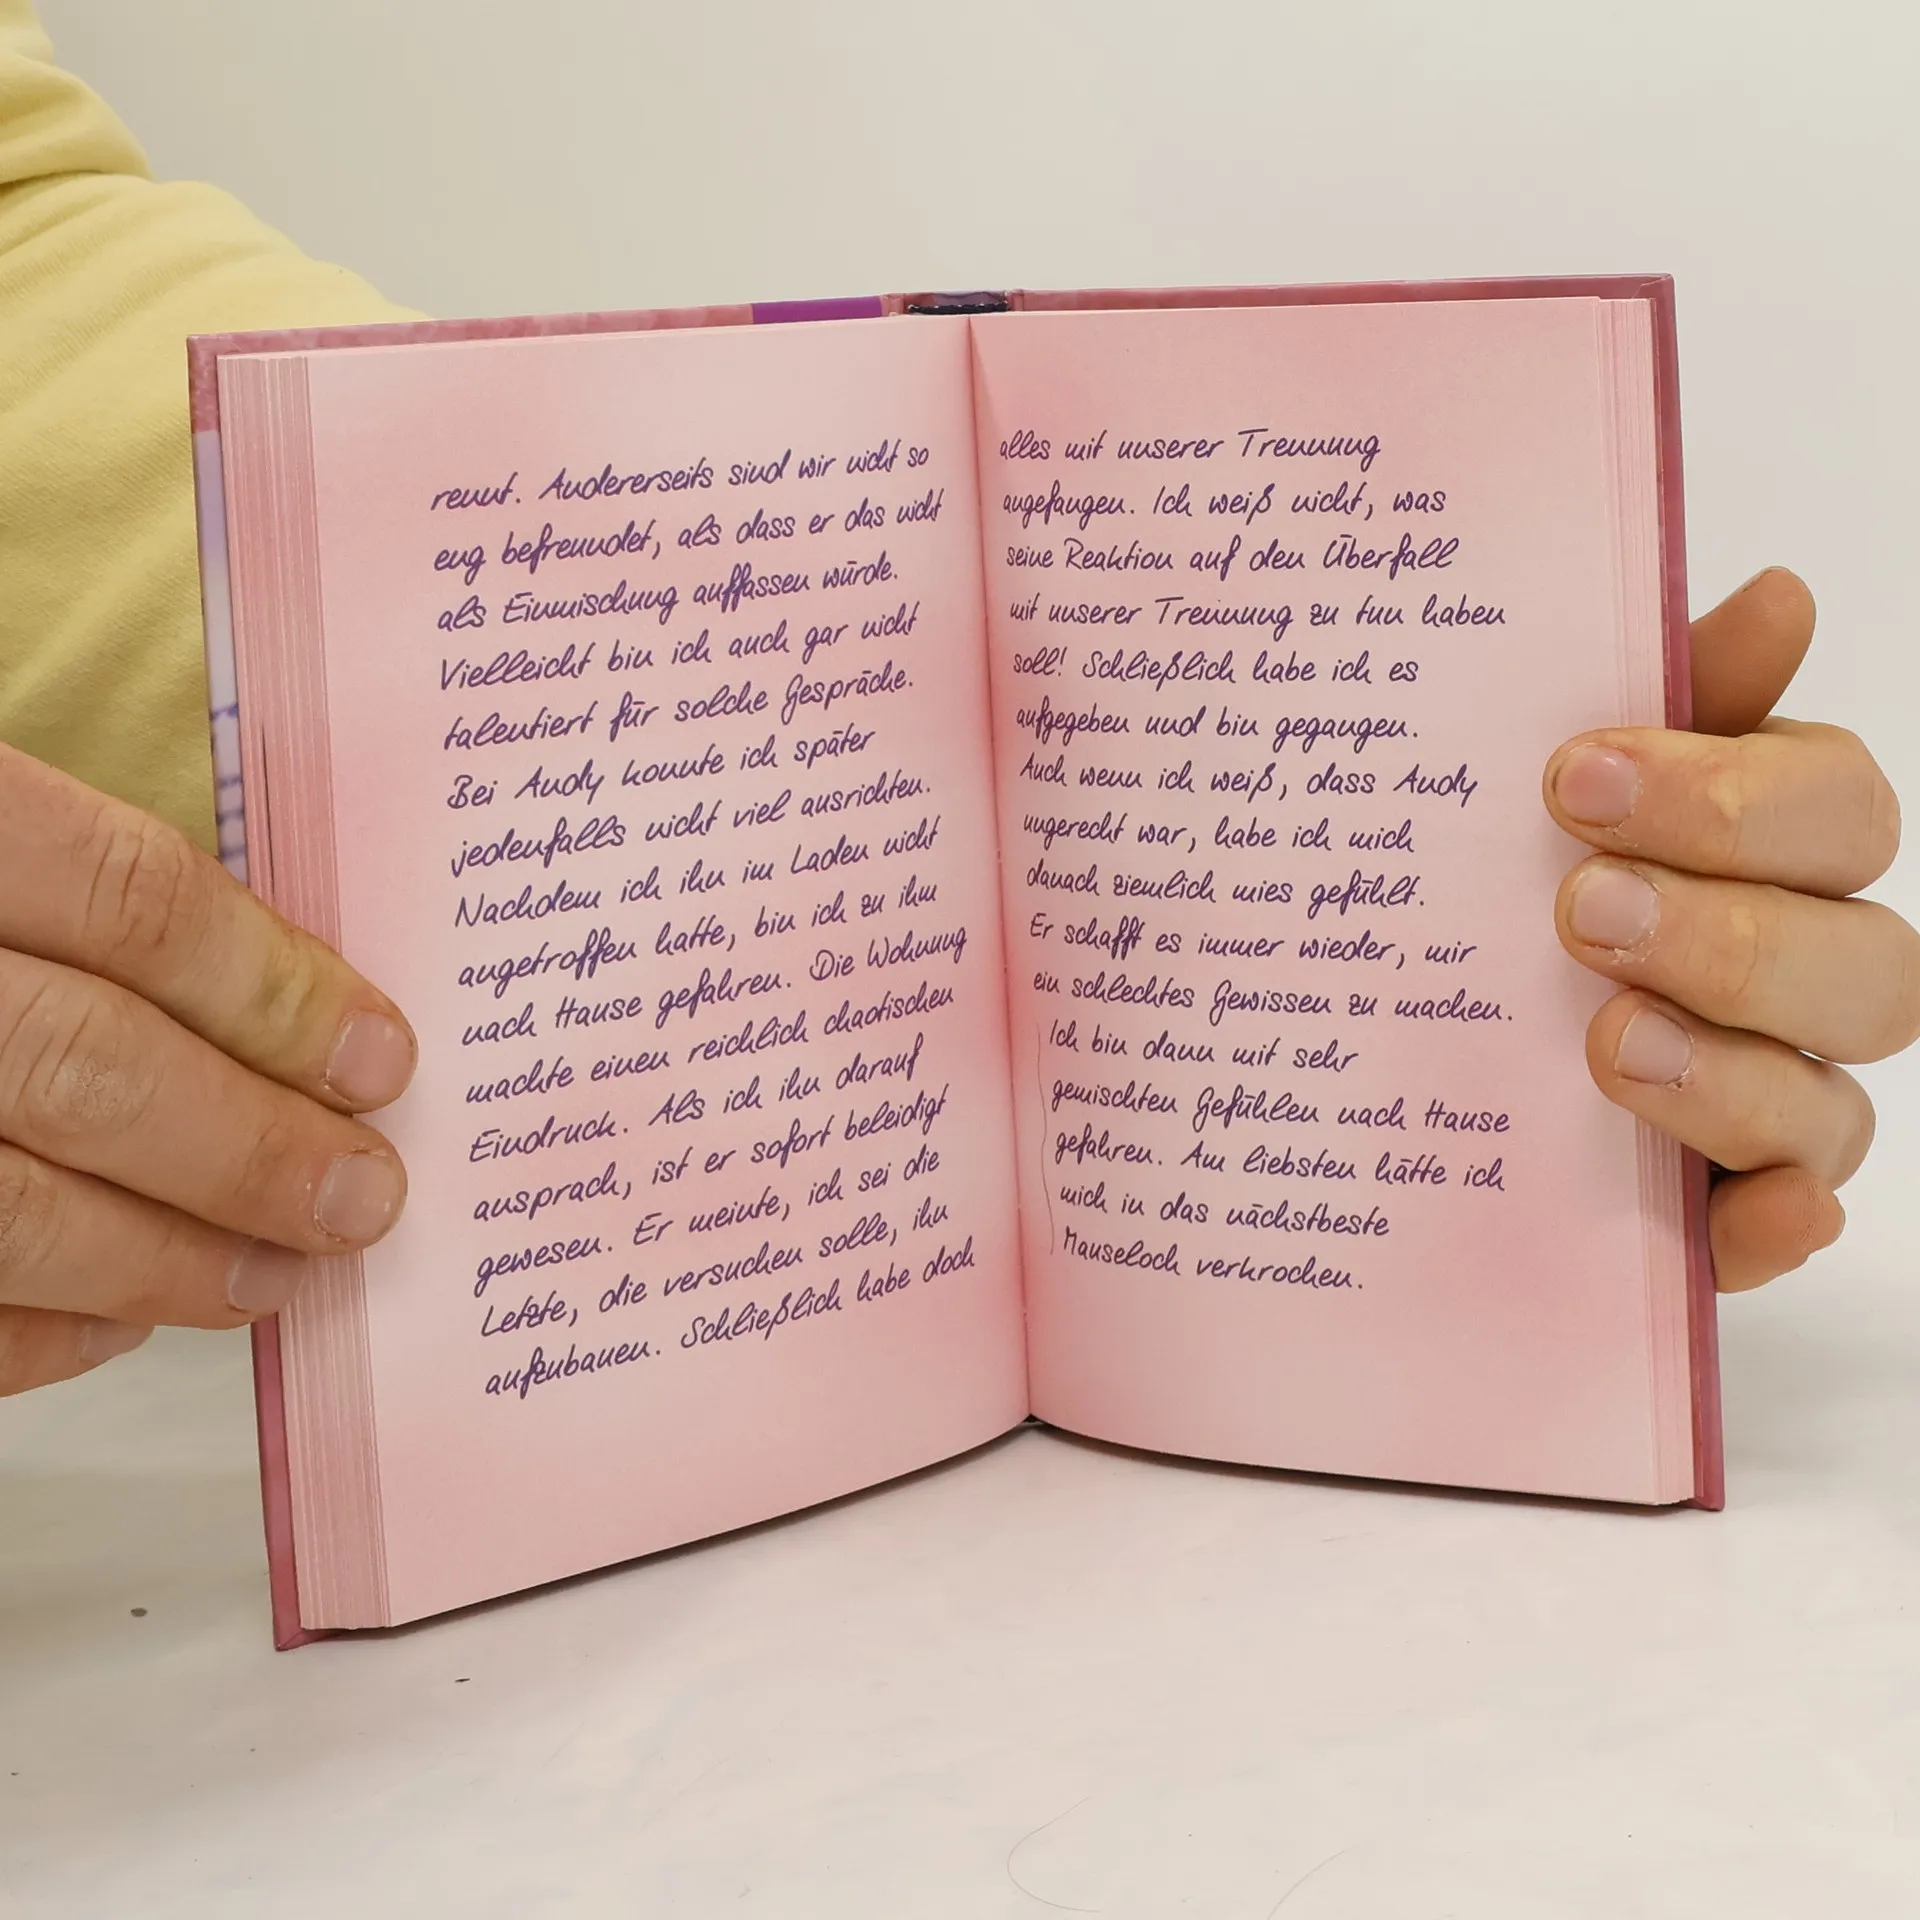 rennt. Andererseits sind wir nicht so
eng befreundet, als dass er das nicht
als Einmischung auffassen würde.
Vielleicht bin ich auch gar nicht
talentiert für solche Gespräche.
Bei Andy konnte ich später
jedenfalls nicht viel ausrichten.
Nachdem ich ihn im Laden nicht
angetroffen hatte, bin ich zu ihm
nach Hause gefahren. Die Wohnung
machte einen reichlich chaotischen
Eindruck. Als ich ihn darauf
ansprach, ist er sofort beleidigt
gewesen. Er meinte, ich sei die
Letzte, die versuchen solle, ihn
aufzubauen. Schließlich habe doch
alles mit unserer Trennung
angefangen. Ich weiß nicht, was
seine Reaktion auf den Überfall
mit unserer Trennung zu tun haben
soll! Schließlich habe ich es
aufgegeben und bin gegangen.
Auch wenn ich weiß, dass Andy
ungerecht war, habe ich mich
danach ziemlich mies gefühlt.
Er schafft es immer wieder, mir
ein schlechtes Gewissen zu machen.
Ich bin dann mit sehr
gemischten Gefühlen nach Hause
gefahren. Am liebsten hätte ich
mich in das nächstbeste
Mauseloch verkrochen.